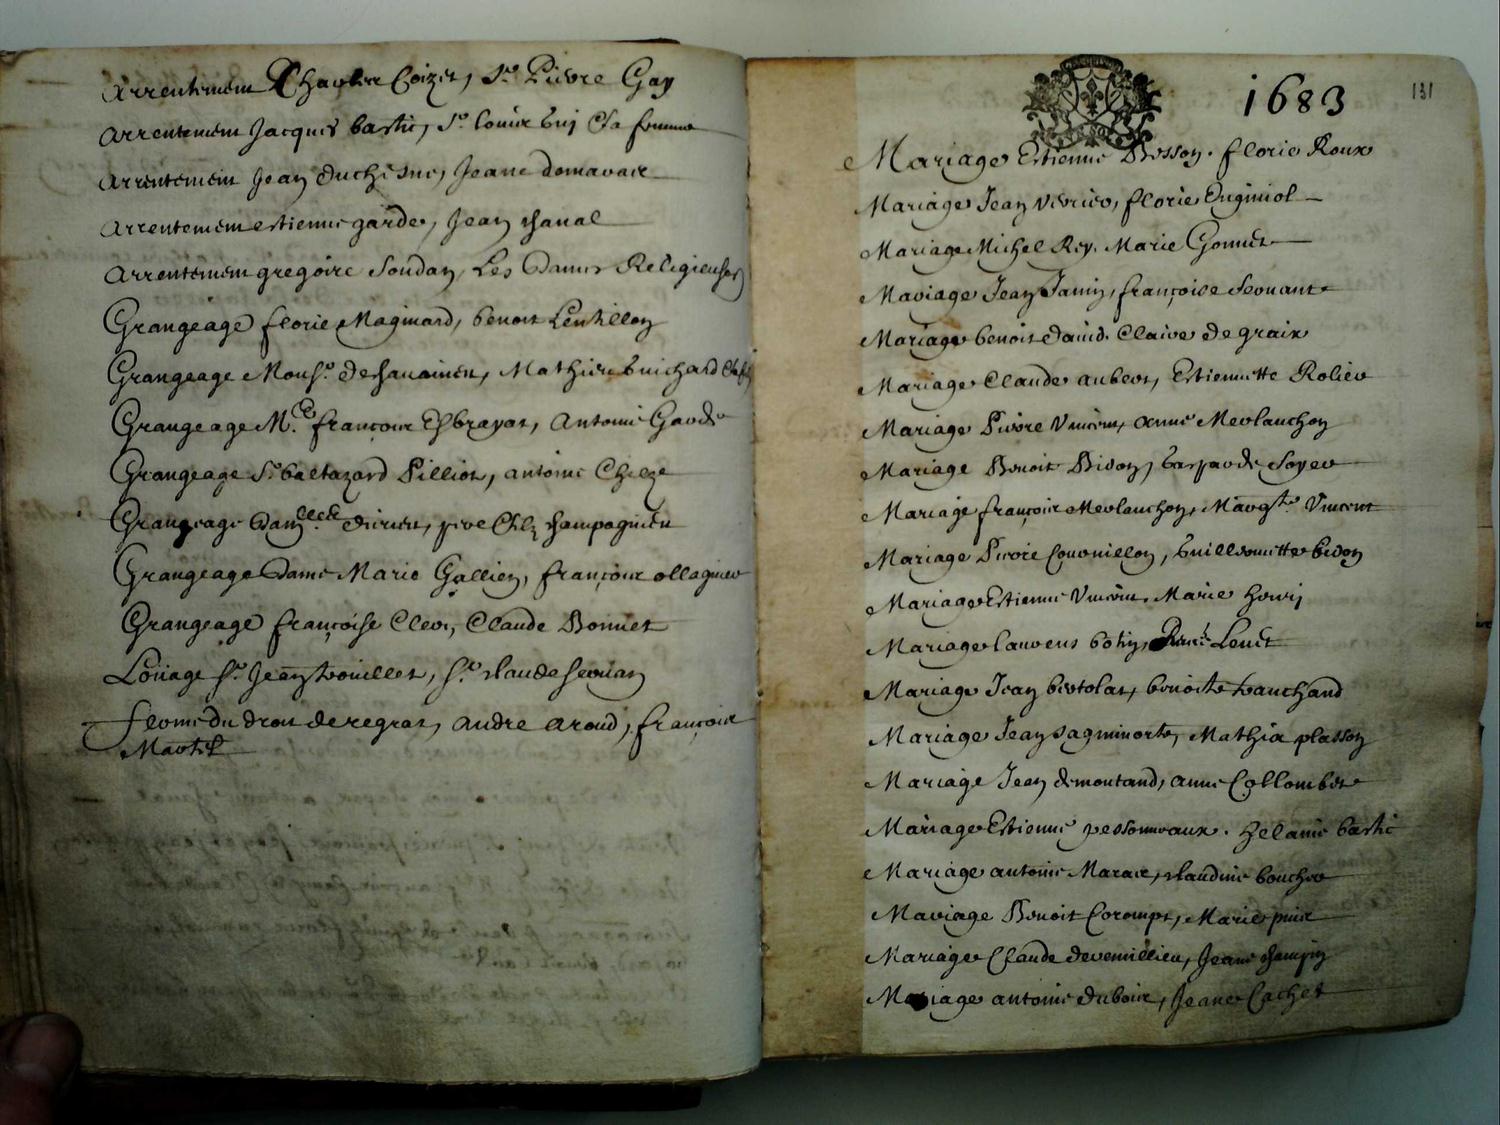 Arrentemem Charles Coizet, Sr. Pierre Gay
Arrentemem Jacques bastie, Sr. louis Guy & sa femme
Arrentemem Jean duchesne, Jeane
Arrentemem estienne garde, Jean chanal
Arrentemem gregoire Soudan, Les Dames Religieuses
Grangeage florie Magniard, benoit Lentillon
Grangeage Monsr. , Mathieu Guichard
Grangeage Me. françois Esbrayat, Antoine Garde
Grangeage Sr. baltazard Pillion, antoine Cheze
Grangeage champagnieu
Grangeage Dame Marie Gallien, françois ollagnier
Grangeage françoise Clerc, Claude Bonnet
Loüage Sr. Jean trouillet, Sr. claude servian
ferme du droit de regrat, andre aroud, françois
Martel
1683
131
Mariage Estienne Besson. florie Roux
Mariage Jean verrier, florie
Mariage Michel Rey. Marie Gonnet
Mariage Jean Jamin, françoise servant
Mariage benoit david. Claire de graix
Mariage Claude aubert, Estiennette Rolier
Mariage Pierre Vincent, anne Merlanchon
Mariage Benoit Bidon, Soyer
Mariage françois Merlanchon, Margte Vincent
Mariage Pierre Couvuillon, Guillermette bidon
Mariage Estienne Vincent. Marie henrj
Mariage laurens botin, Lenet
Mariage Jean bertolat, benoite tranchand
Mariage Jean sagnimorte, Mathia plasson
Mariage Jean demontand, anne Collombet
Mariage Estienne pessonneaux. helanie bastie
Mariage antoine Marace, claudine boucher
Mariage Benoit Corompt, Marie
Mariage Claude devernilieu, Jeane champin
Mariage antoine dubois, Jeane Cachet